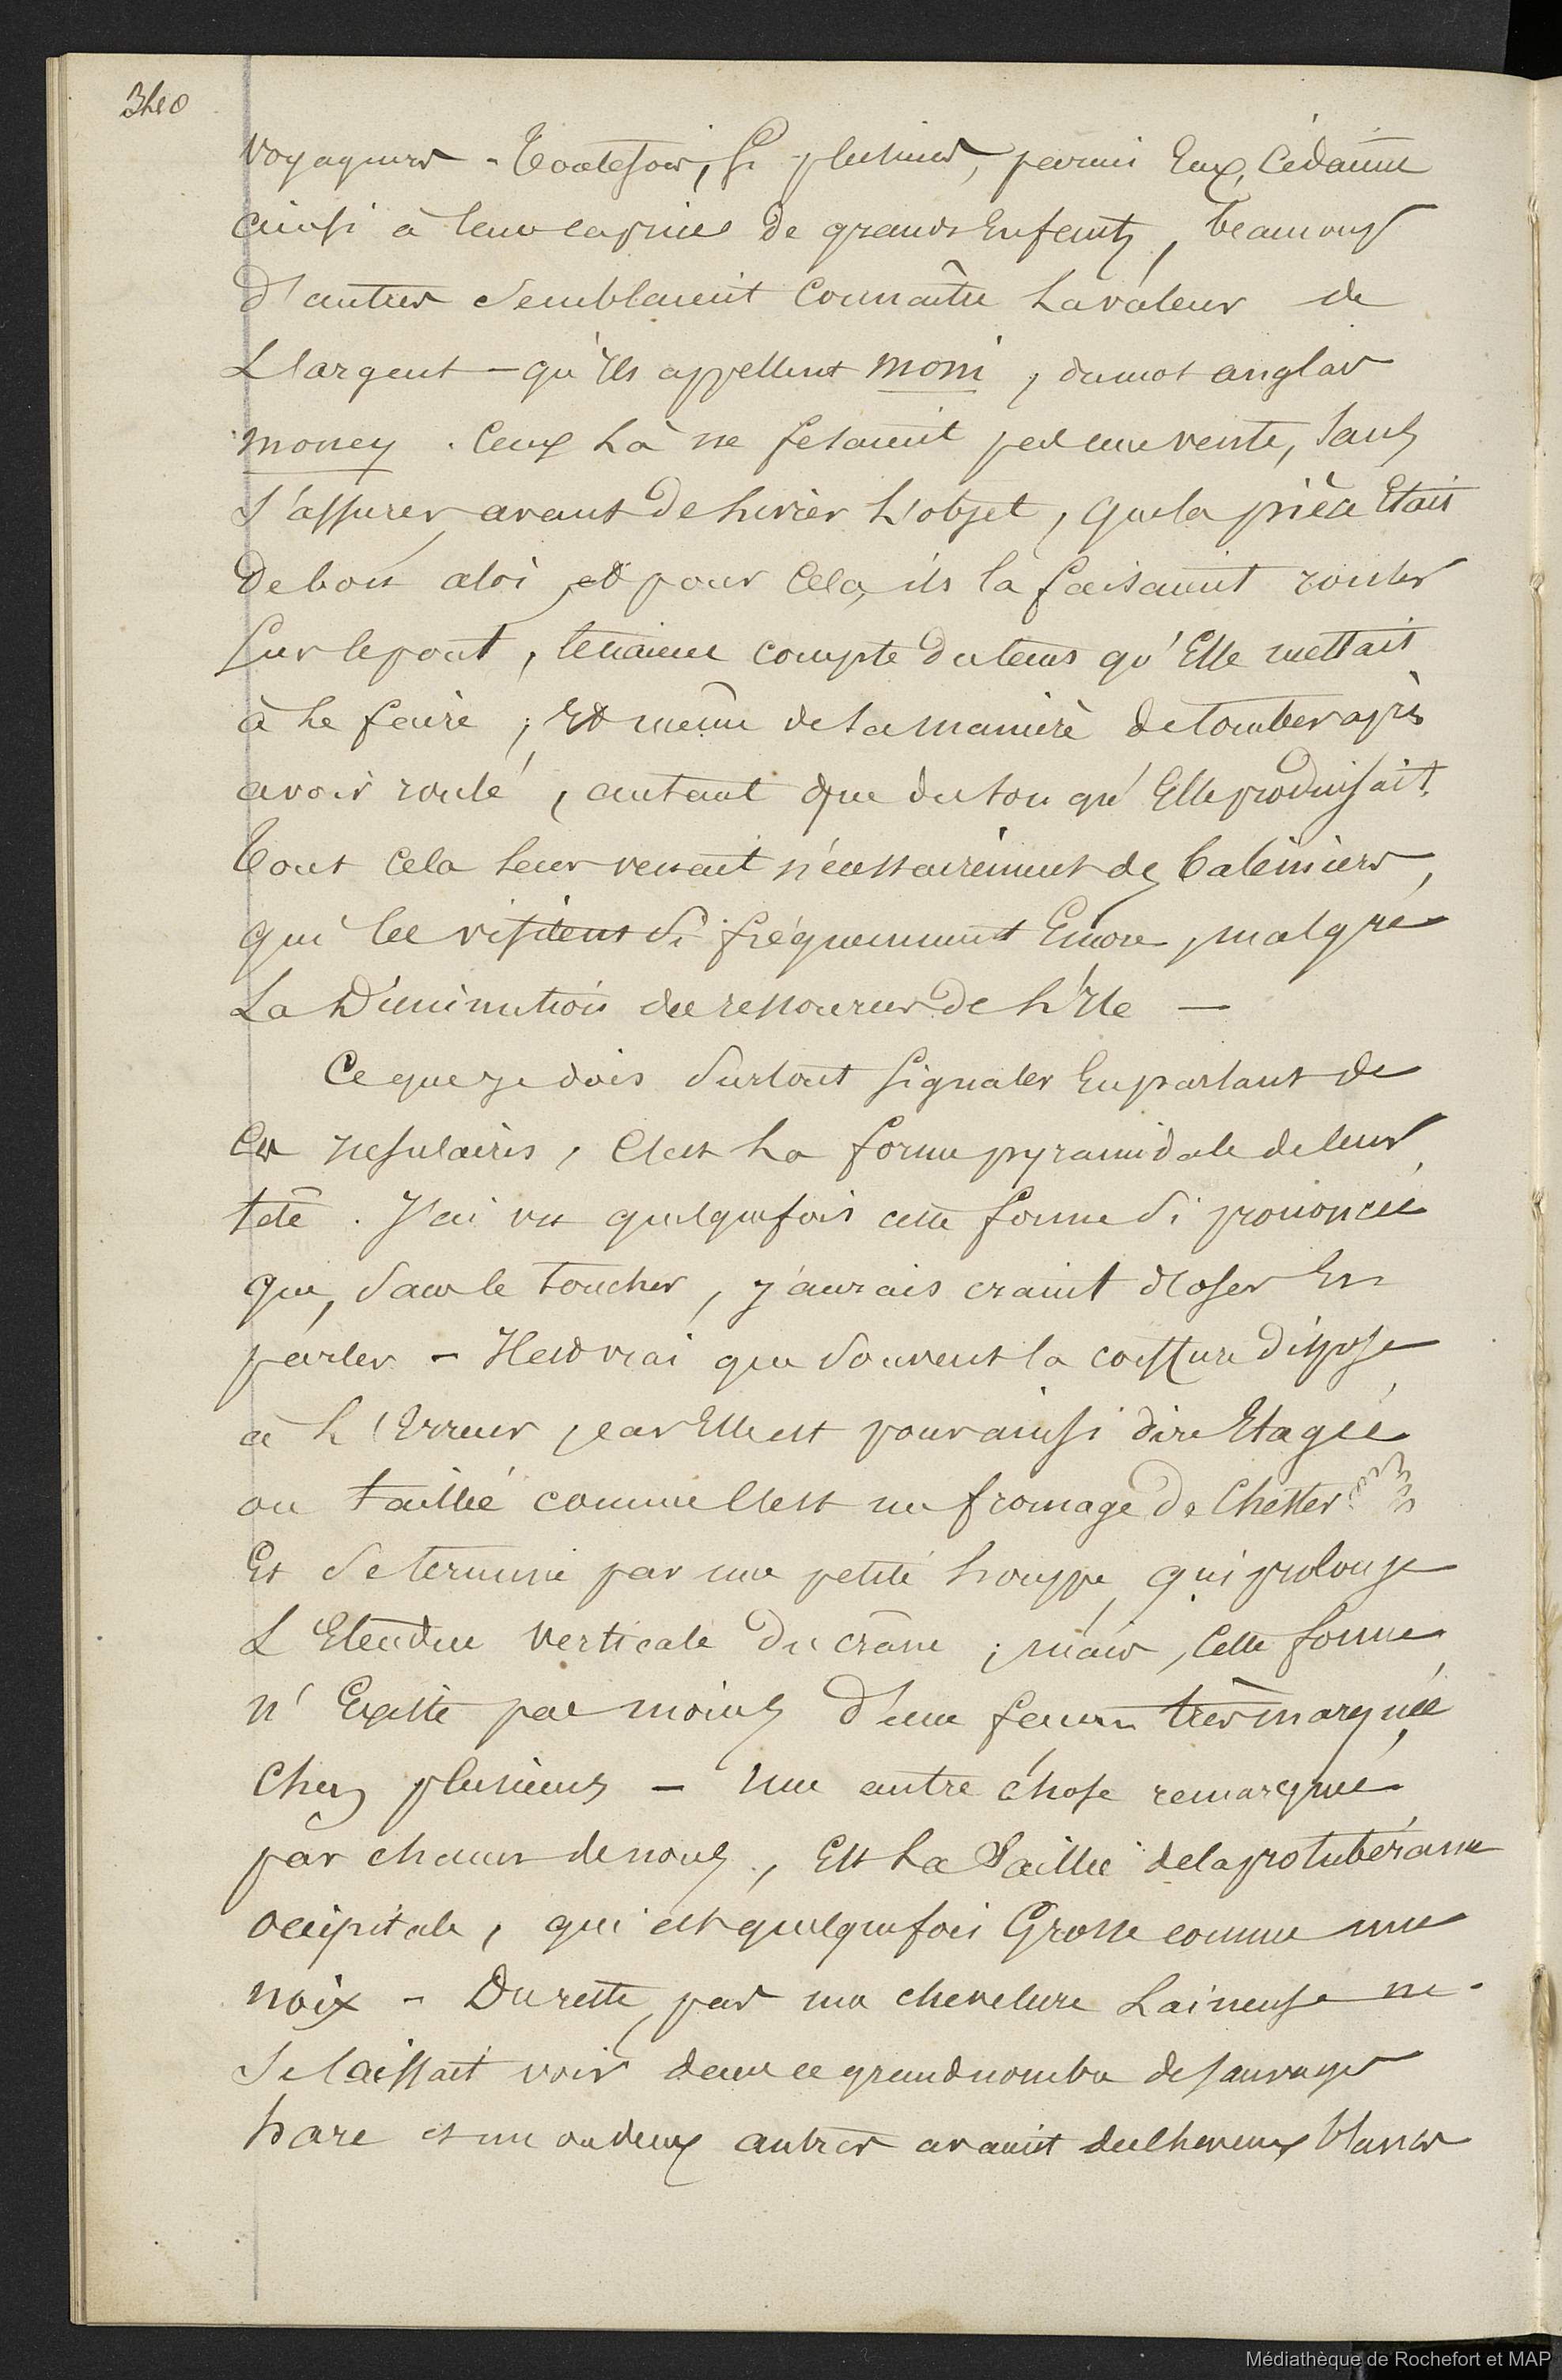 340
voyageurs - Toutefois, si plusieurs, parmi Eux, Cédaient
ainsi à leurs caprices de grands Enfents, beaucoup
d'autres Semblaient Connaître La valeur de
L'argent - qu'ils appellent moni, du mot anglais
money. Ceux Là ne fesaient pas une vente, sans
s'assurer, avant de Livrer L'objet, que la pièce Etait
de bon aloi, et pour Cela, ils la faisaient rouler
sur le pont, tenaient compte du tems qu'Elle mettait
à Le faire, Et même de la manière de tomber après
avoir roulé, autant que du son qu'Elle produisait.
Tout Cela Leur venait nécessairement des Baleiniers,
qui les visitent si fréquemment Encore, malgré
La Diminution des ressources de L'Ile —
Ce que je dois Surtout signaler En parlant de
Ces Insulaires, C'est La forme pyramidale de leur
tête. J'ai vu quelquefois cette forme si prononcée
que, sans le toucher, j'aurais craint d'oser En
parler - Il est vrai que Souvent la coiffure dispose
à L'Erreur, car Elle est pour ainsi dire Etagée
ou taillée comme l'est un fromage de Chester
Et se termine par une petite houppe, qui prolonge
L'Etendue verticale du crâne ; mais, Cette forme
n'Existe pas moins d'une façon très marquée
Chez plusieurs - Une autre chose remarquée
par chacun de nous, Est La Saillie de la protubérance
occipitale, qui est quelquefois Grosse comme une
noix - Du reste, pas une chevelure Laineuse ne
Se laissait voir dans ce grand nombre de sauvages
hare et un ou deux autres avaient des cheveux blancs
Médiathèque de Rochefort et MAP